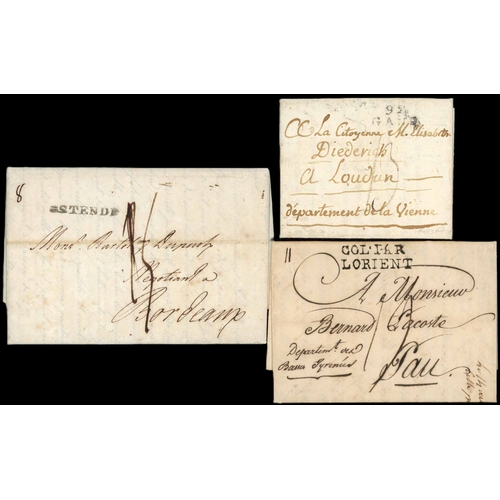 8
OSTENDE
Mons.r Barthel.y Dupuch
Negotiant a
Bordeaux
92
GAND
La Citoyenne M. Elisabeth
Diederich
A Loudun
département de la Vienne
11
COL. PAR
LORIENT
A Monsieur
Bernard Lacoste
Departem.t des
Basses Pyrenées
Pau